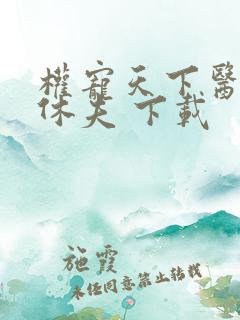 權寵天下醫
休夫 下載
施霞
未任同意禁止转载